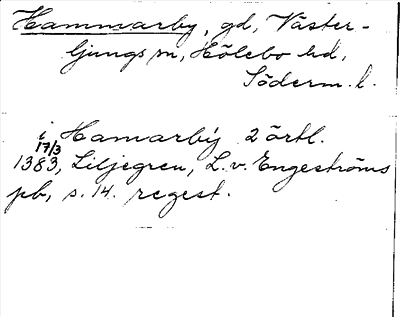 Hammarby, gd, Väster-
ljungs sn, Hölebo hd,
Söderm. l.
i Hamarby 2 örtl.
17/3
1383, Liljegren, L. v. Engeströms
pb, s. 14. regest.